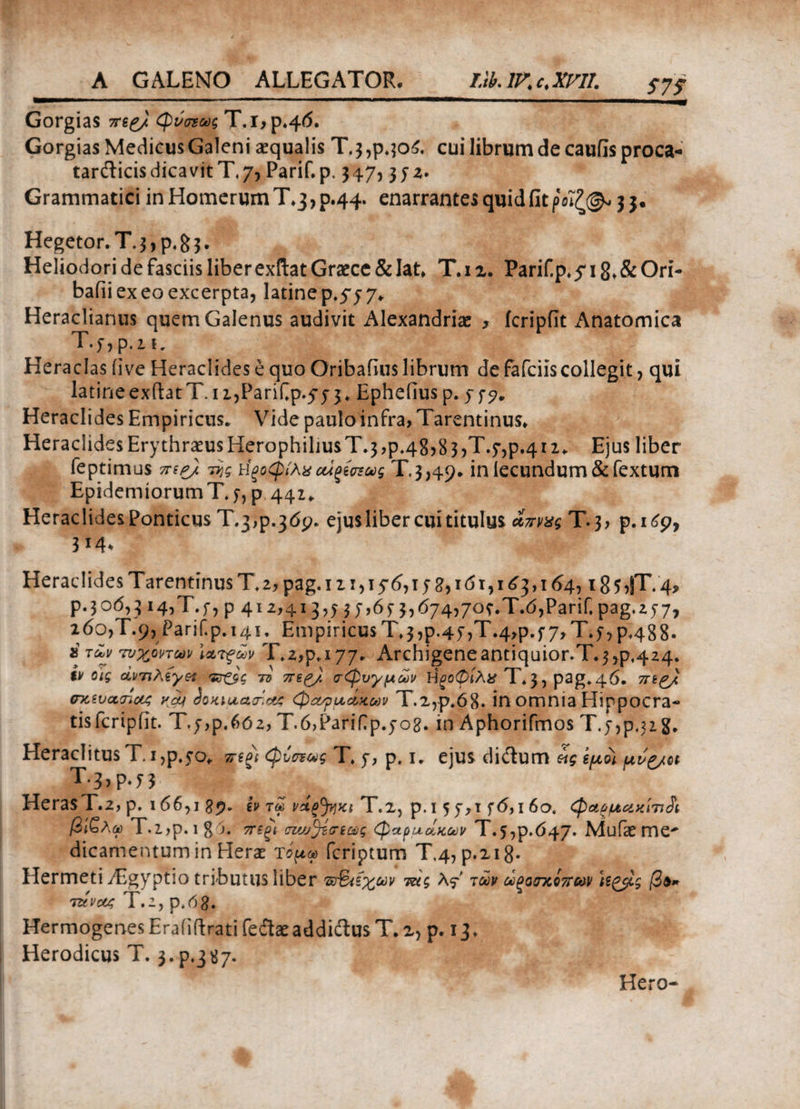 A GALENO ALLEGATOR. Lib. IV. c. XVII. 575
Gorgias περὶ φύσεως T.1, p.46.
Gorgias Medicus Galeni æqualis T.3,p.306. cui librum de causis proca-
tarcticis dicavit T.7, Paris. p. 347, 352.
Grammatici in Homerum T.3, p.44. enarrantes quid sit ῥοῖζος 33.
Hegetor. T.3, p.83.
Heliodori de fasciis liber exstat Græce & lat. T.12. Paris.p.518.& Ori-
basii ex eo excerpta, latine p.557.
Heraclianus quem Galenus audivit Alexandriæ, scripsit Anatomica
T.5, p.21.
Heraclas sive Heraclides è quo Oribasius librum de fasciis collegit, qui
latine exstat T.12,Paris.p.553. Ephesius p. 559.
Heraclides Empiricus. Vide paulo infra, Tarentinus.
Heraclides Erythræus Herophilius T.3,p.48,83,T.5,p.412. Ejus liber
septimus περὶ τῆς Ηροφίλου αἱρέσεως T.3,49. in secundum & sextum
Epidemiorum T.5, p 442.
Heraclides Ponticus T.3,p.369. ejus liber cui titulus ἄπνους T.3, p.169,
314.
Heraclides Tarentinus T.2, pag.121,156,158,161,163,164, 185,|T.4,
p.306,314,T.5, p 412,413,535,653,674,705.T.6,Paris. pag.257,
260,T.9, Paris.p.141. Empiricus T.3,p.45,T.4,p.57, T.5, p.488.
οὐ τῶν τυχόντων ἰατρῶν T.2,p.177. Archigene antiquior.T.3,p.424.
ἐν οἷς ἀντιλέγει πρὸς τὸ περὶ σφυγμῶν Ηροφίλου T.3, pag.46. περὶ
σκευασίας καὶ δοκιμασίας φαρμάκων T.2,p.68. in omnia Hippocra-
tis scripsit. T.5,p.662, T.6,Paris.p.508. in Aphorismos T.5,p.328.
Heraclitus T.1,p.50. περὶ φύσεως T. 5, p. 1. ejus dictum εἷς ἐμοὶ μύριοι
T.3,p.53
Heras T.2, p. 166,189. ἐν τῷ νάρθηκι T.2, p.155,156,160. φαρμακίτιδι
βίβλῳ T.2,p.185. περὶ συνθέσεως φαρμάκων T.5,p.647. Musæ me-
dicamentum in Heræ τόμῳ scriptum T.4, p.218.
Hermeti Ægyptio tributus liber περιέχων τὰς λϛ' τῶν ὡροσκόπων ἱερὰς βο-
τάνας T.2, p.68.
Hermogenes Erasistrati sectæ addictus T.2, p. 13.
Herodicus T. 3. p.387.
Hero-